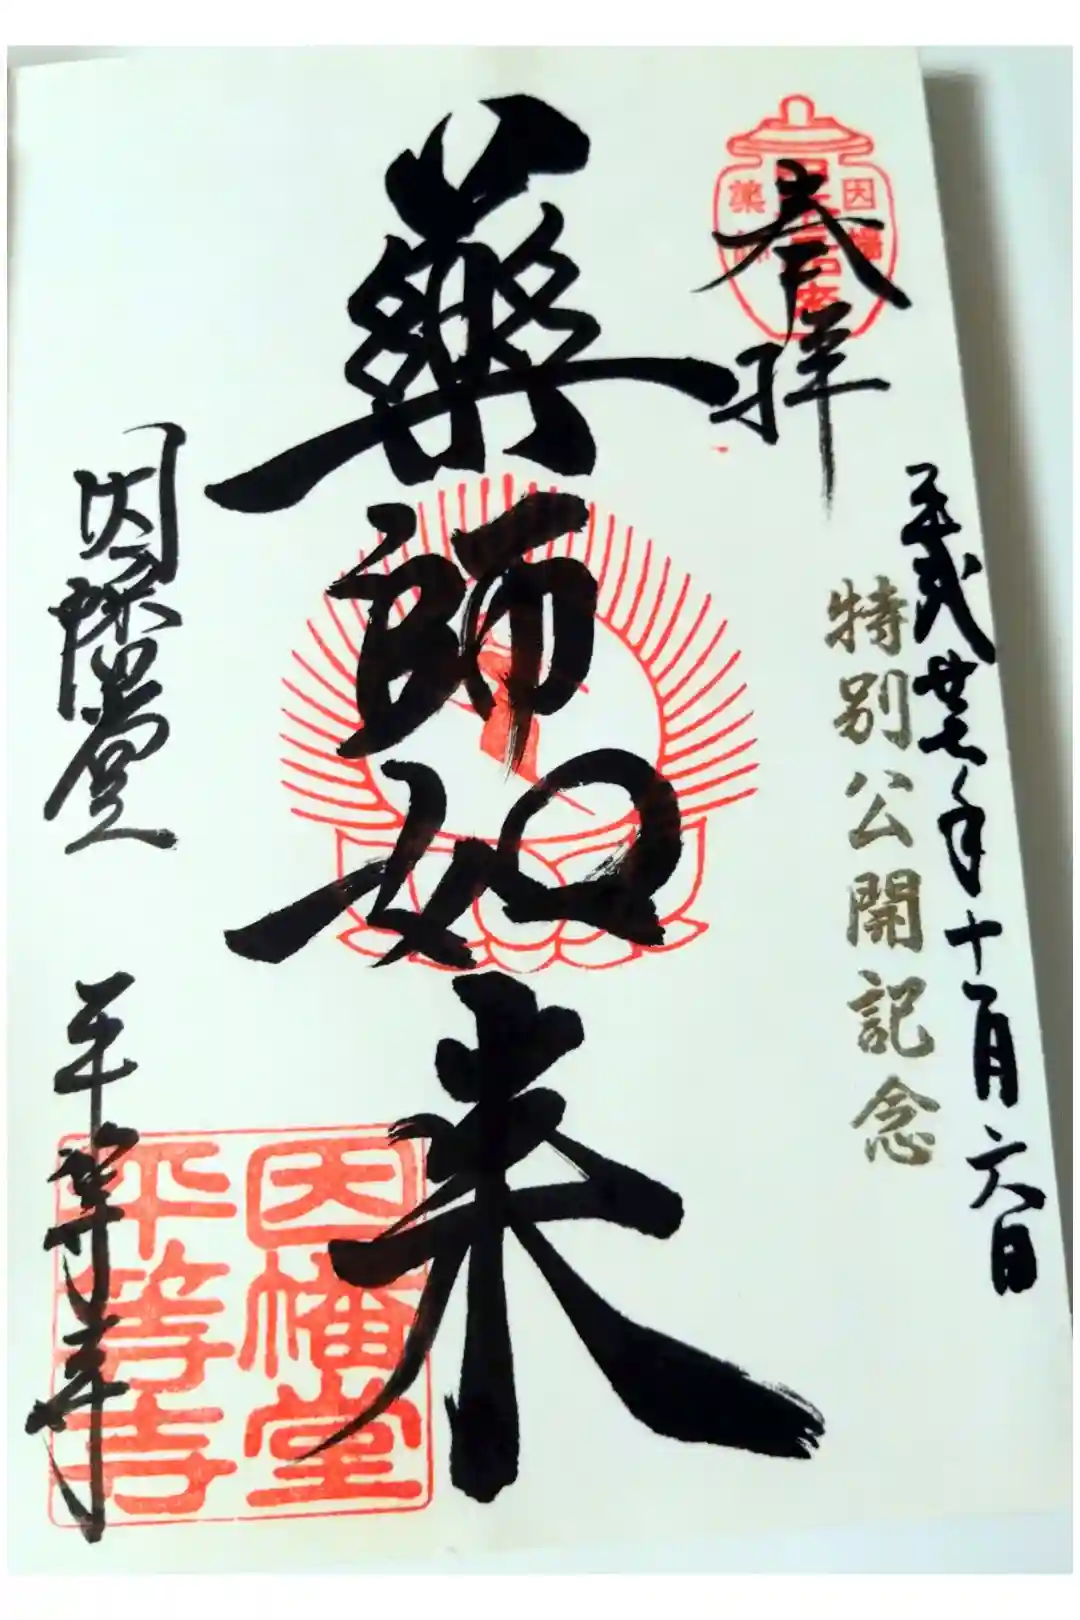 参拝
因幡
薬師
平成廿七年十一月六日
特別公開記念
薬師如来
因幡堂
平等寺
因幡堂
平等寺